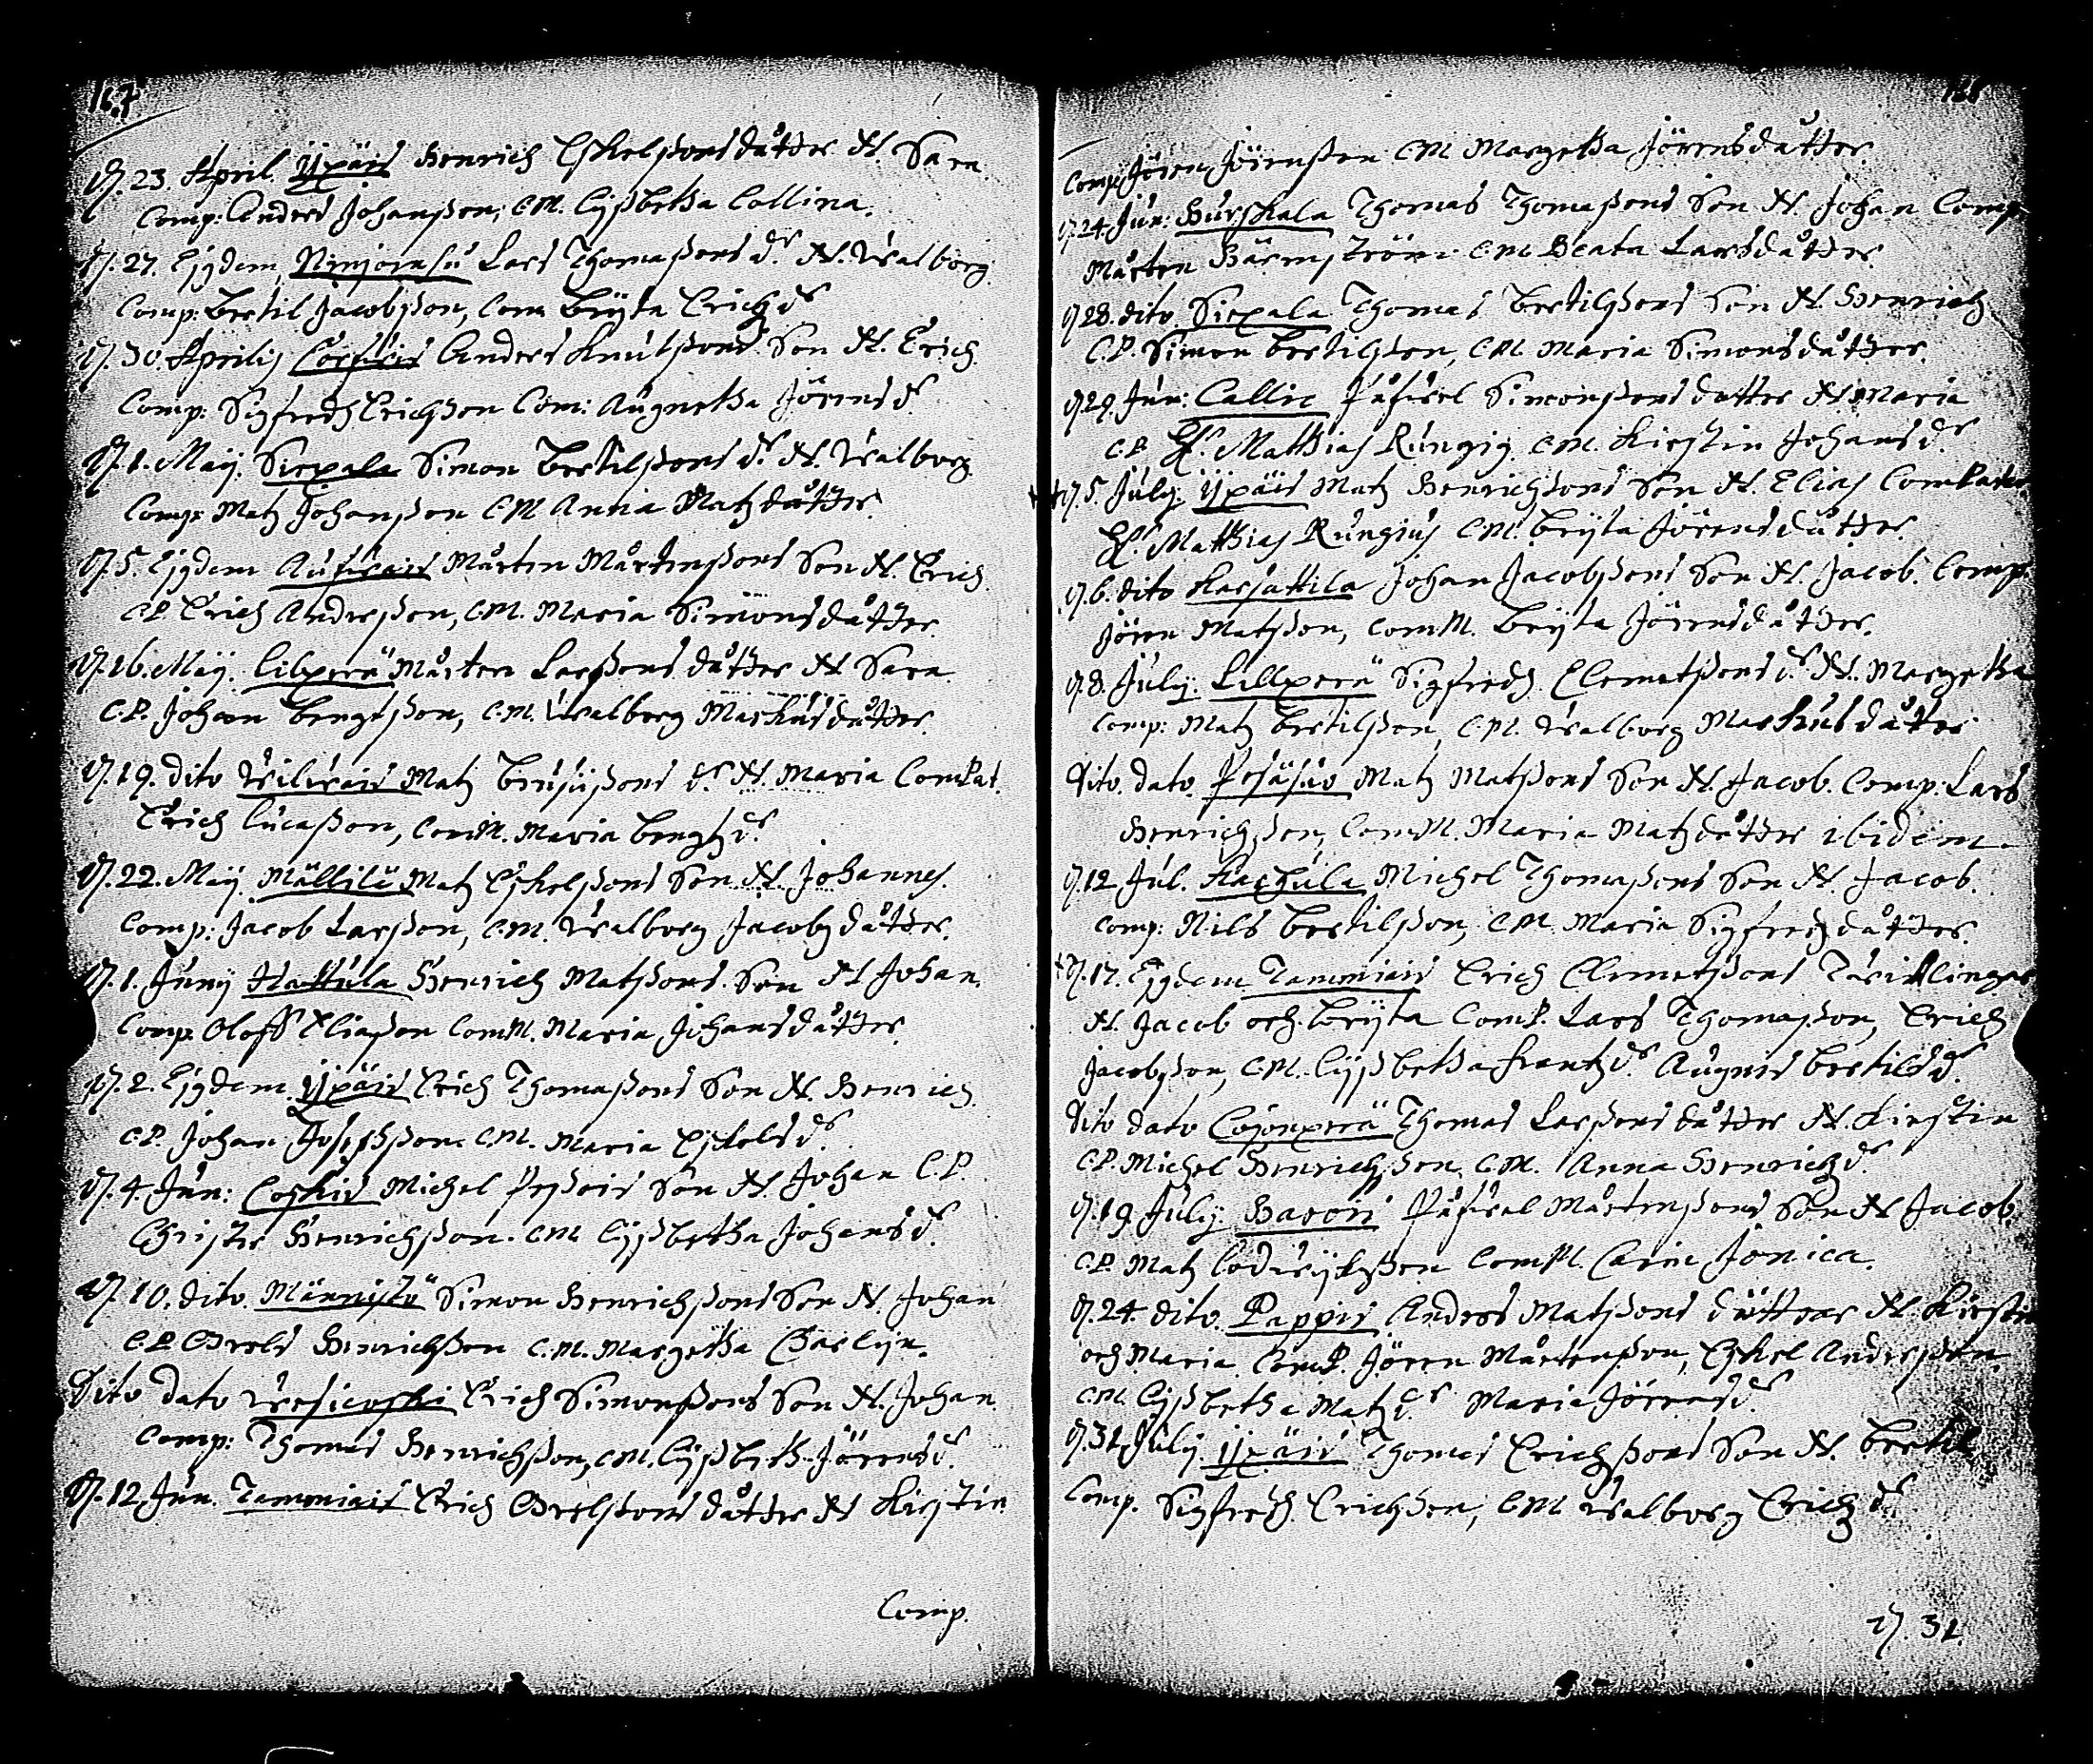 167
D. 23. April. Ypäis Henrich Eskelßons dåtter N. Sara.
Comp: Anders Johanßon, C.M. Lijsbetha Collina.
D. 27. Ejusdem Lars Thomaßons dr. N. Walborg.
Comp: Bertil Jacobßon, Com: Brijta Erichz dr
D. 30. Aprilis Anders Knutßons Son N. Erich
Comp: Sigfredh Erichßon Com: Augnetha Jörens dr
D. 1. Maij. Sierala Simon Bertilßons dr. N. Walborg
Comp: Matz Johanßon C.M Anna Matz dåtter.
D. 5. Ejusdem Mårten Mårtenßons Son N. Erich
C.P. Erich Andersßon, C.M. Maria Simons dåtter.
D. 16. Maij. Lilperä Mårten Larßons dåtter N Sara
C.P. Johan Bengtßon, C.M. Walborg Markus dåtter.
D. 19. dito Matz dr N. Maria ComPat.
Erich Lucaßon, ComM. Maria Bengtz dr
D. 22. Maij Mällilä Matz Eskelßons Son N. Johannes.
Comp: Jacob Larßon, C.M. Walborg Jacobz dåtter.
D. 1. Junij Hattula Henrich Matßons Son N Johan.
Comp. Oloff Eliaßon ComM. Maria Johans dåtter.
D. 2. Ejusdem Ypäis Erich Thomaßons Son N. Henrich
C.P. Johan Josephßon C.M. Maria Eskels dr
D. 4. Jun: Coskis Michel Son N. Johan C.P.
Christer Henrichßon. C.M Lijsbetha Johans dr
D. 10. dito. Männistö Simon Henrichßons Son N. Johan
C.P. Grels Henrichßon C.M. Margetha Charlijn.
Dito dato Wesicoski Erich Simonßons Son N. Johan
Comp: Thomas Henrichßon, C.M. Lijsbeth Jörens dr
D. 12 Jun. Tammiais Erich Grelßons dåtter N Kirstin
Comp.
168
Comp: Jören Jörenßon C.M Margetha Jörens dåtter.
D. 24. Jun: Hurskala Thomas Thomaßons Son N. Johan Comp
Mårten Bärnström C.M Beata Lars dåtter.
D 28. dito Sierala Thomas Bertilßons Son N. Henrich
C.P. Simon Bertilßon, C.M. Maria Simons dåtter.
D 29. Jun: Callis Påfwel Simonßons dåtter N. Maria
C.P. H. Matthias Rungig C.M. Kirstin Johans dr
D. 5. Julij. Ypäis Matz Henrichßons Son N. Elias ComPater
H. Matthias Rungius C.M. Brijta Jörens dåtter.
D. 6. dito Karjattila Johan Jacobßons Son N. Jacob. Comp:
Jören Matßon, ComM. Brijta Jörens dåtter.
D. 8. Julij. Lillperä Sigfredh Clemetßons dr N. Margetha
Comp: Matz Bertilßon, C.M. Walborg Markus dåtter
Dito. dato. Matz Matßons Son N. Jacob. Comp: Lars
Henrichßon, ComM. Maria Matz dåtter ibidem.
D. 12 Jul. Karhula Michel Thomaßons Son N. Jacob.
Comp: Nils Bertilßon, C.M. Maria Sigfredz dåtter.
D. 17. Ejusdem Tammiais Erich Clemetßons Twillingar
N. Jacob och Brijta ComP. Lars Thomaßon, Erich
Jacobßon, C.M. Lijsbetha Frantz dr Augnes Bertils dr.
Dito dato Cojonperä Thomas Larßons dåtter N. Kirstin
C.P. Michel Henrichßon, C.M. Anna Henrichz dr
D. 19 Julij Påfwel Mårtenßons Son N Jacob.
C.P. Matz Lodwijkßon ComM. Carin Jonica.
D. 24. dito. Pappis Anders Matßons döttrar N. Kirstin
och Maria ComP. Jören Mårtenßon, Eskel Andersßon
C.M. Lijsbetha Matz dr Maria Jörens dr
D. 31 Julij Ypäis Thomas Erichßons Son N. Bertil
Comp. Sigfredh Erichßon, C.M Walborg Erichz dr
D. 31.